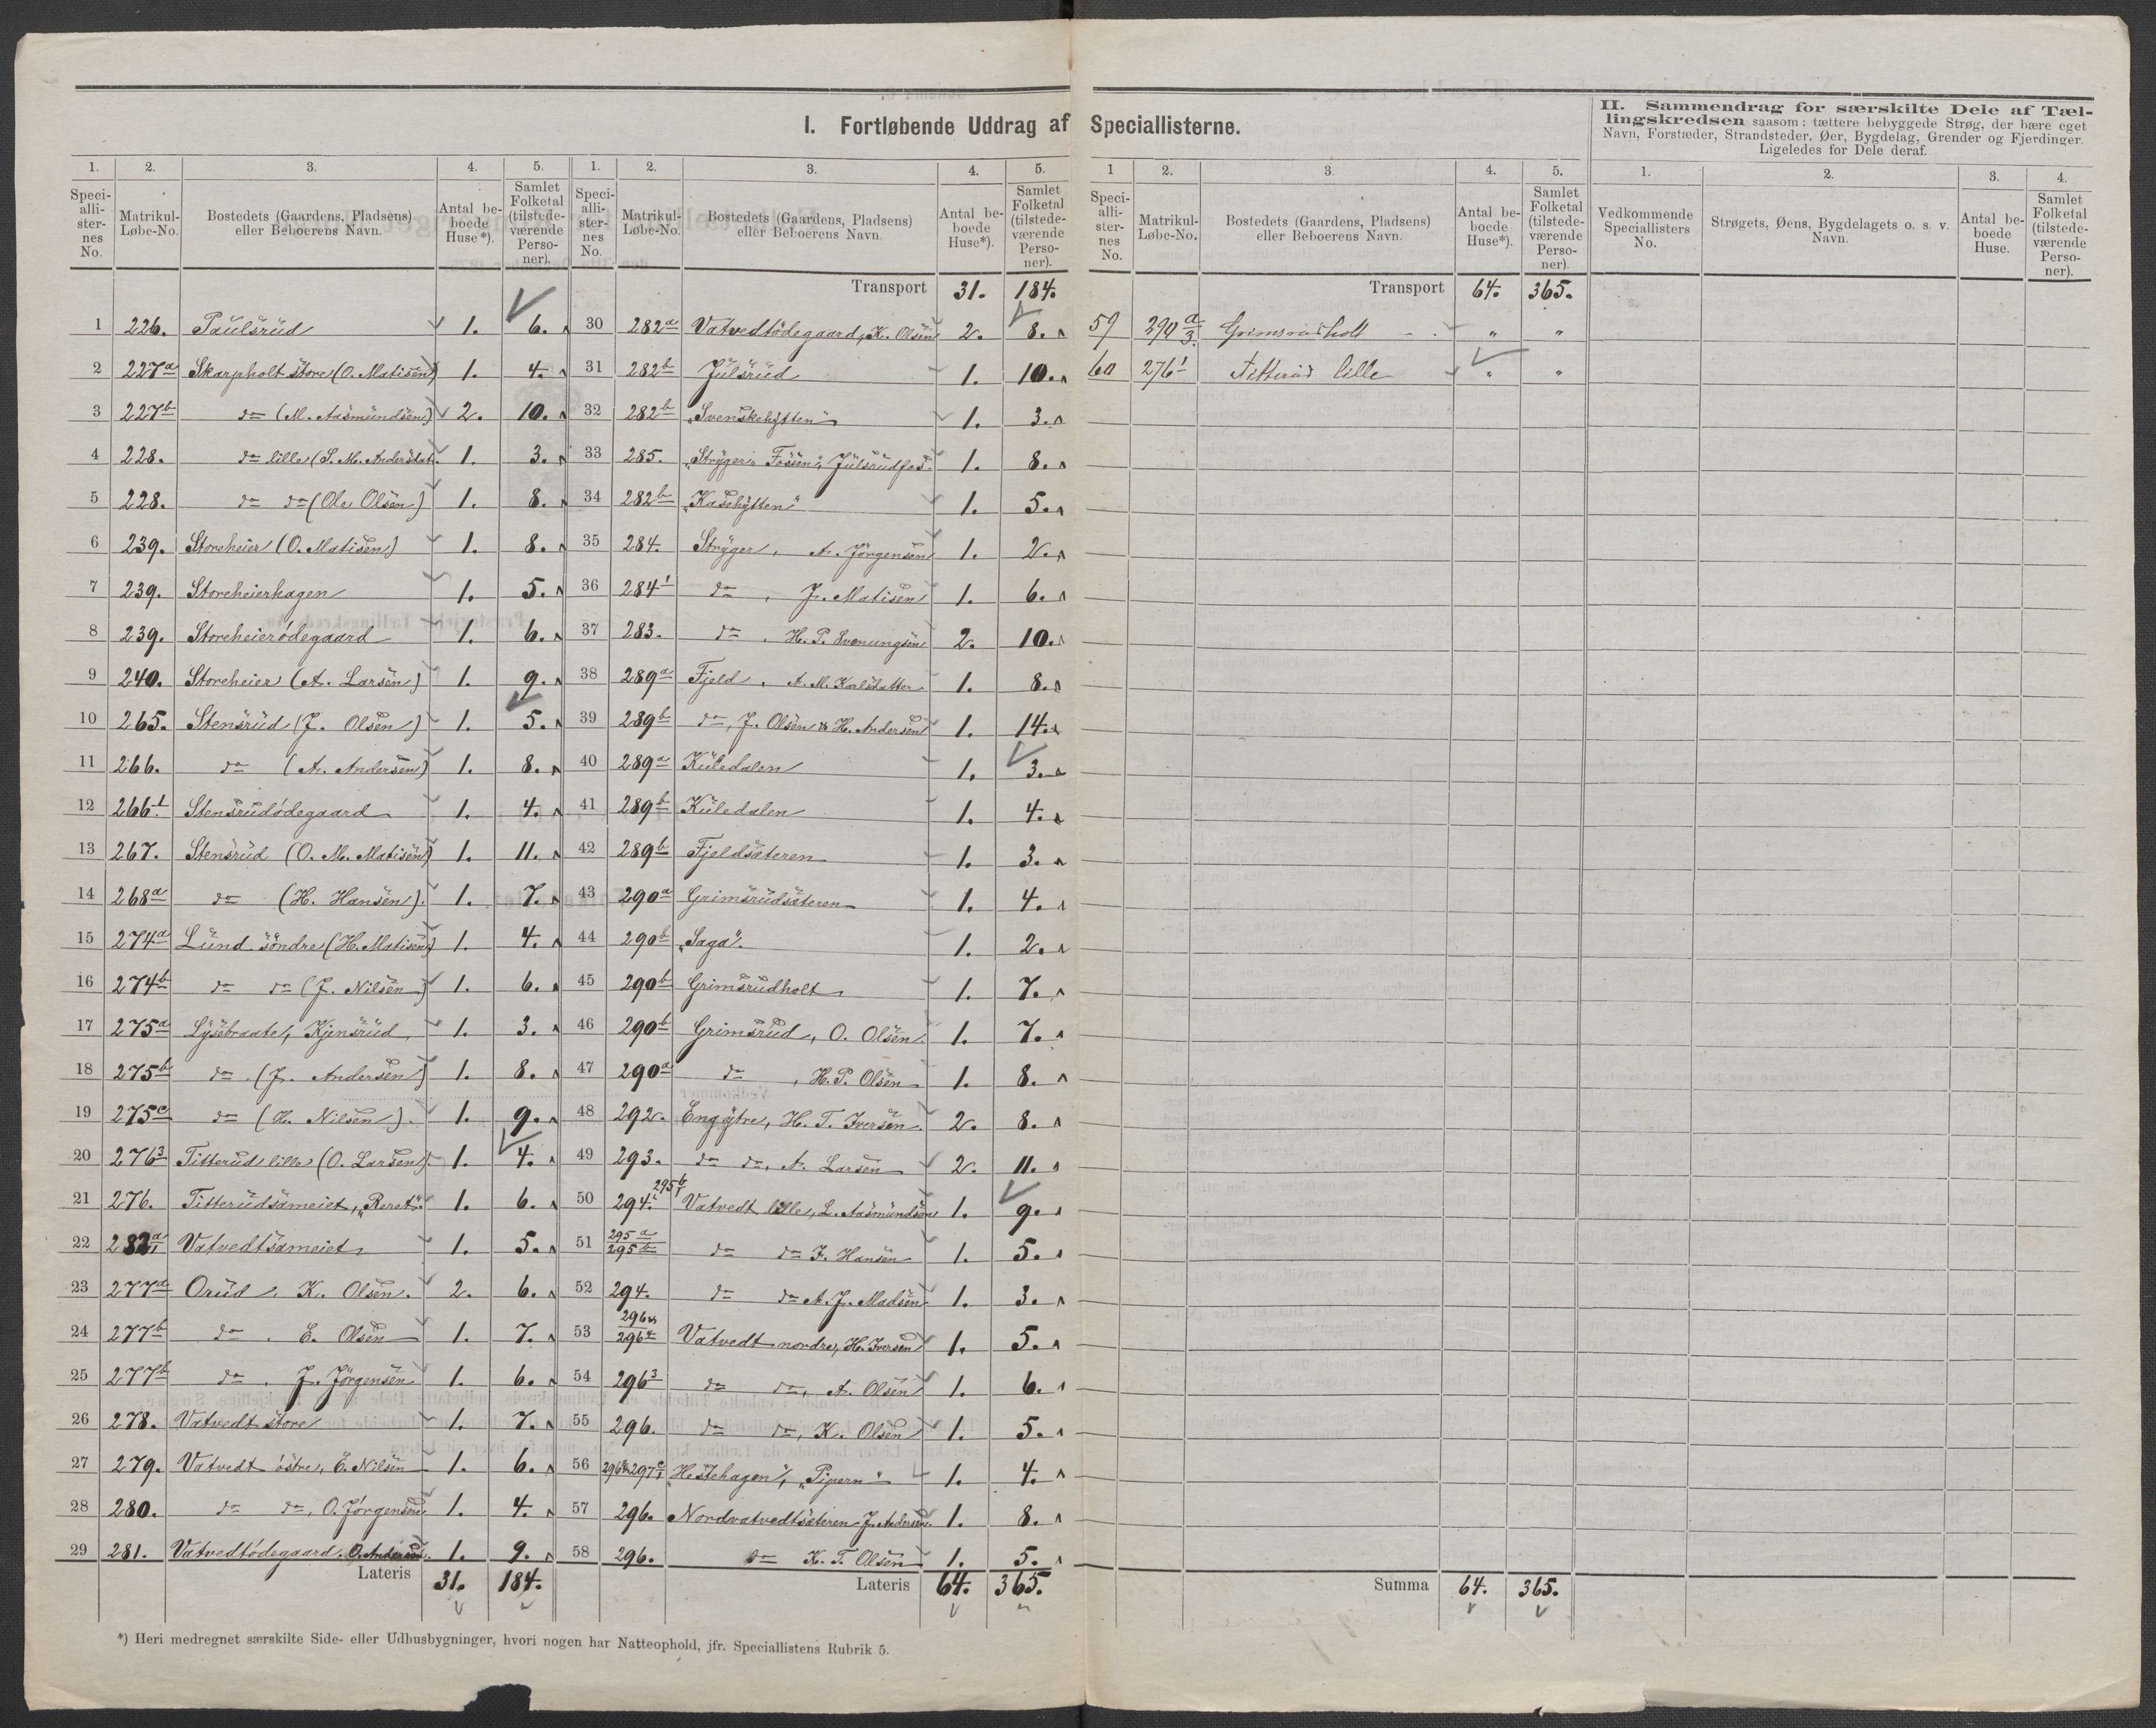 I. Fortløbende Uddrag af Speciallisterne.
1. 2. 3. 4. 5.
Speci-alli-ster-nes No. Matrikul-Løbe-No. Bostedets (Gaardens, Pladsens) eller Beboerens Navn. Antal be-boede Huse*). Samlet Folketal (tilstede-værende Perso-ner).
1 226. Paulsrud 1. 6.
2 227a Skarpholt store (O. Matisen) 1. 4.
3 227b do (M. Aasmundsen) 2. 10.
4 228. do lille (S. M. Andersdat. 1. 3.
5 228. do do (Ole Olsen) 1. 8.
6 239. Storeheier (O. Matisen) 1. 8.
7 239. Storeheierhagen 1. 5.
8 239. Storeheierödegaard 1. 6.
9 240. Storeheier (A. Larsen) 1. 9.
10 265. Stensrud (J. Olsen) 1. 5.
11 266. do (A. Andersen) 1. 8.
12 266 1 Stensrudödegaard 1. 4.
13 267. Stensrud (O. M. Matisen) 1. 11.
14 268a do (H. Hansen). 1. 7.
15 274a Lund söndre (H. Matisen) 1. 4.
16 274b do do (J. Nilsen) 1. 6.
17 275a Lysebraate, Kjensrud 1. 3.
18 275b do (J. Andersen) 1. 8.
19 275c do (H. Nilsen). 1. 9.
20 276 3 Titterud lille (O. Larsen) 1. 4.
21 276. Titterudsameiet, „Reret“. 1. 6.
22 282 a/1 Vatvedtsameiet 1. 5.
23 277a Orud, K. Olsen. 2. 6.
24 277b do, E. Olsen 1. 7.
25 277b do, J. Jörgensen 1. 6.
26 278. Vatvedt store 1. 7.
27 279. Vatvedt östre, E. Nilsen 1. 6.
28 280. do do, O. Jörgensen 1. 4.
29 281. Vatvedtödegaard. O. Andersen. 1. 9.
Lateris 31. 184.
1. 2. 3. 4. 5.
Speci-alli-ster-nes No. Matrikul-Løbe-No. Bostedets (Gaardens, Pladsens) eller Beboerens Navn. Antal be-boede Huse*). Samlet Folketal (tilstede-værende Perso-ner).
Transport 31. 184.
30 282a Vatvedtödegaard, K. Olsen 2. 8.
31 282b Julsrud 1. 10.
32 282b „Svenskehytten“ 1. 3.
33 285. „Stryger i Fossen“, Julsrudfos. 1. 8.
34 282b „Kasehytten“ 1. 5.
35 284. Stryger, A. Jörgensen 1. 2.
36 284 1 do, J. Matisen 1. 6.
37 283. do, H. P. Svenungsen 2. 10.
38 289a Fjeld, A. M. Karlsdatter 1. 8.
39 289b do, J. Olsen & H. Andersen 1. 14.
40 289a Kuledalen 1. 3.
41 289b Kuledalen 1. 4.
42 289b Fjeldsæteren 1. 3.
43 290a Grimsrudsæteren 1. 4.
44 290b „Saga“. 1. 2.
45 290b Grimsrudholt 1. 7.
46 290b Grimsrud, O. Olsen. 1. 7.
47 290a do, H. P. Olsen 1. 8.
48 292. Eng ytre, H. T. Iversen. 2. 8.
49 293. do do, A. Larsen 2. 11.
50 294. 295 b/1 Vatvedt lille, L. Aasmundsen 1. 9.
51 295a 295b do do J. Hansen 1. 5.
52 294. do do A. J. Madsen. 1. 3.
53 296 296a Vatvedt nordre, H. Iversen 1. 5.
54 296 3 do do, A. Olsen 1. 6.
55 296. do do, K. Olsen 1. 5.
56 296 & 297 „Hestehagen“, „Pipern“ 1. 4.
57 296. Nordvatvedtsæteren J. Andersen. 1. 8.
58 296. do K. T. Olsen 1. 5.
Lateris 64. 365.
*) Heri medregnet særskilte Side- eller Udhusbygninger, hvori nogen har Natteophold, jfr. Speciallistens Rubrik 5.
1 2. 3. 4. 5.
Speci-alli-ster-nes No. Matrikul-Løbe-No. Bostedets (Gaardens, Pladsens) eller Beboerens Navn. Antal be-boede Huse*). Samlet Folketal (tilstede-værende Perso-ner).
Transport 64. 365.
59 290 a/3 Grimsrudholt " "
60 276 1 Titterud lille " "
Summa 64. 365.
II. Sammendrag for særskilte Dele af Tæl-
lingskredsen saasom: tættere bebyggede Strøg, der bære eget
Navn, Forstæder, Strandsteder, Øer, Bygdelag, Grender og Fjerdinger.
Ligeledes for Dele deraf.
1. 2. 3. 4.
Vedkommende Speciallisters No. Strøgets, Øens, Bygdelagets o. s. v. Navn. Antal be-boede Huse. Samlet Folketal (tilstede-værende Perso-ner).